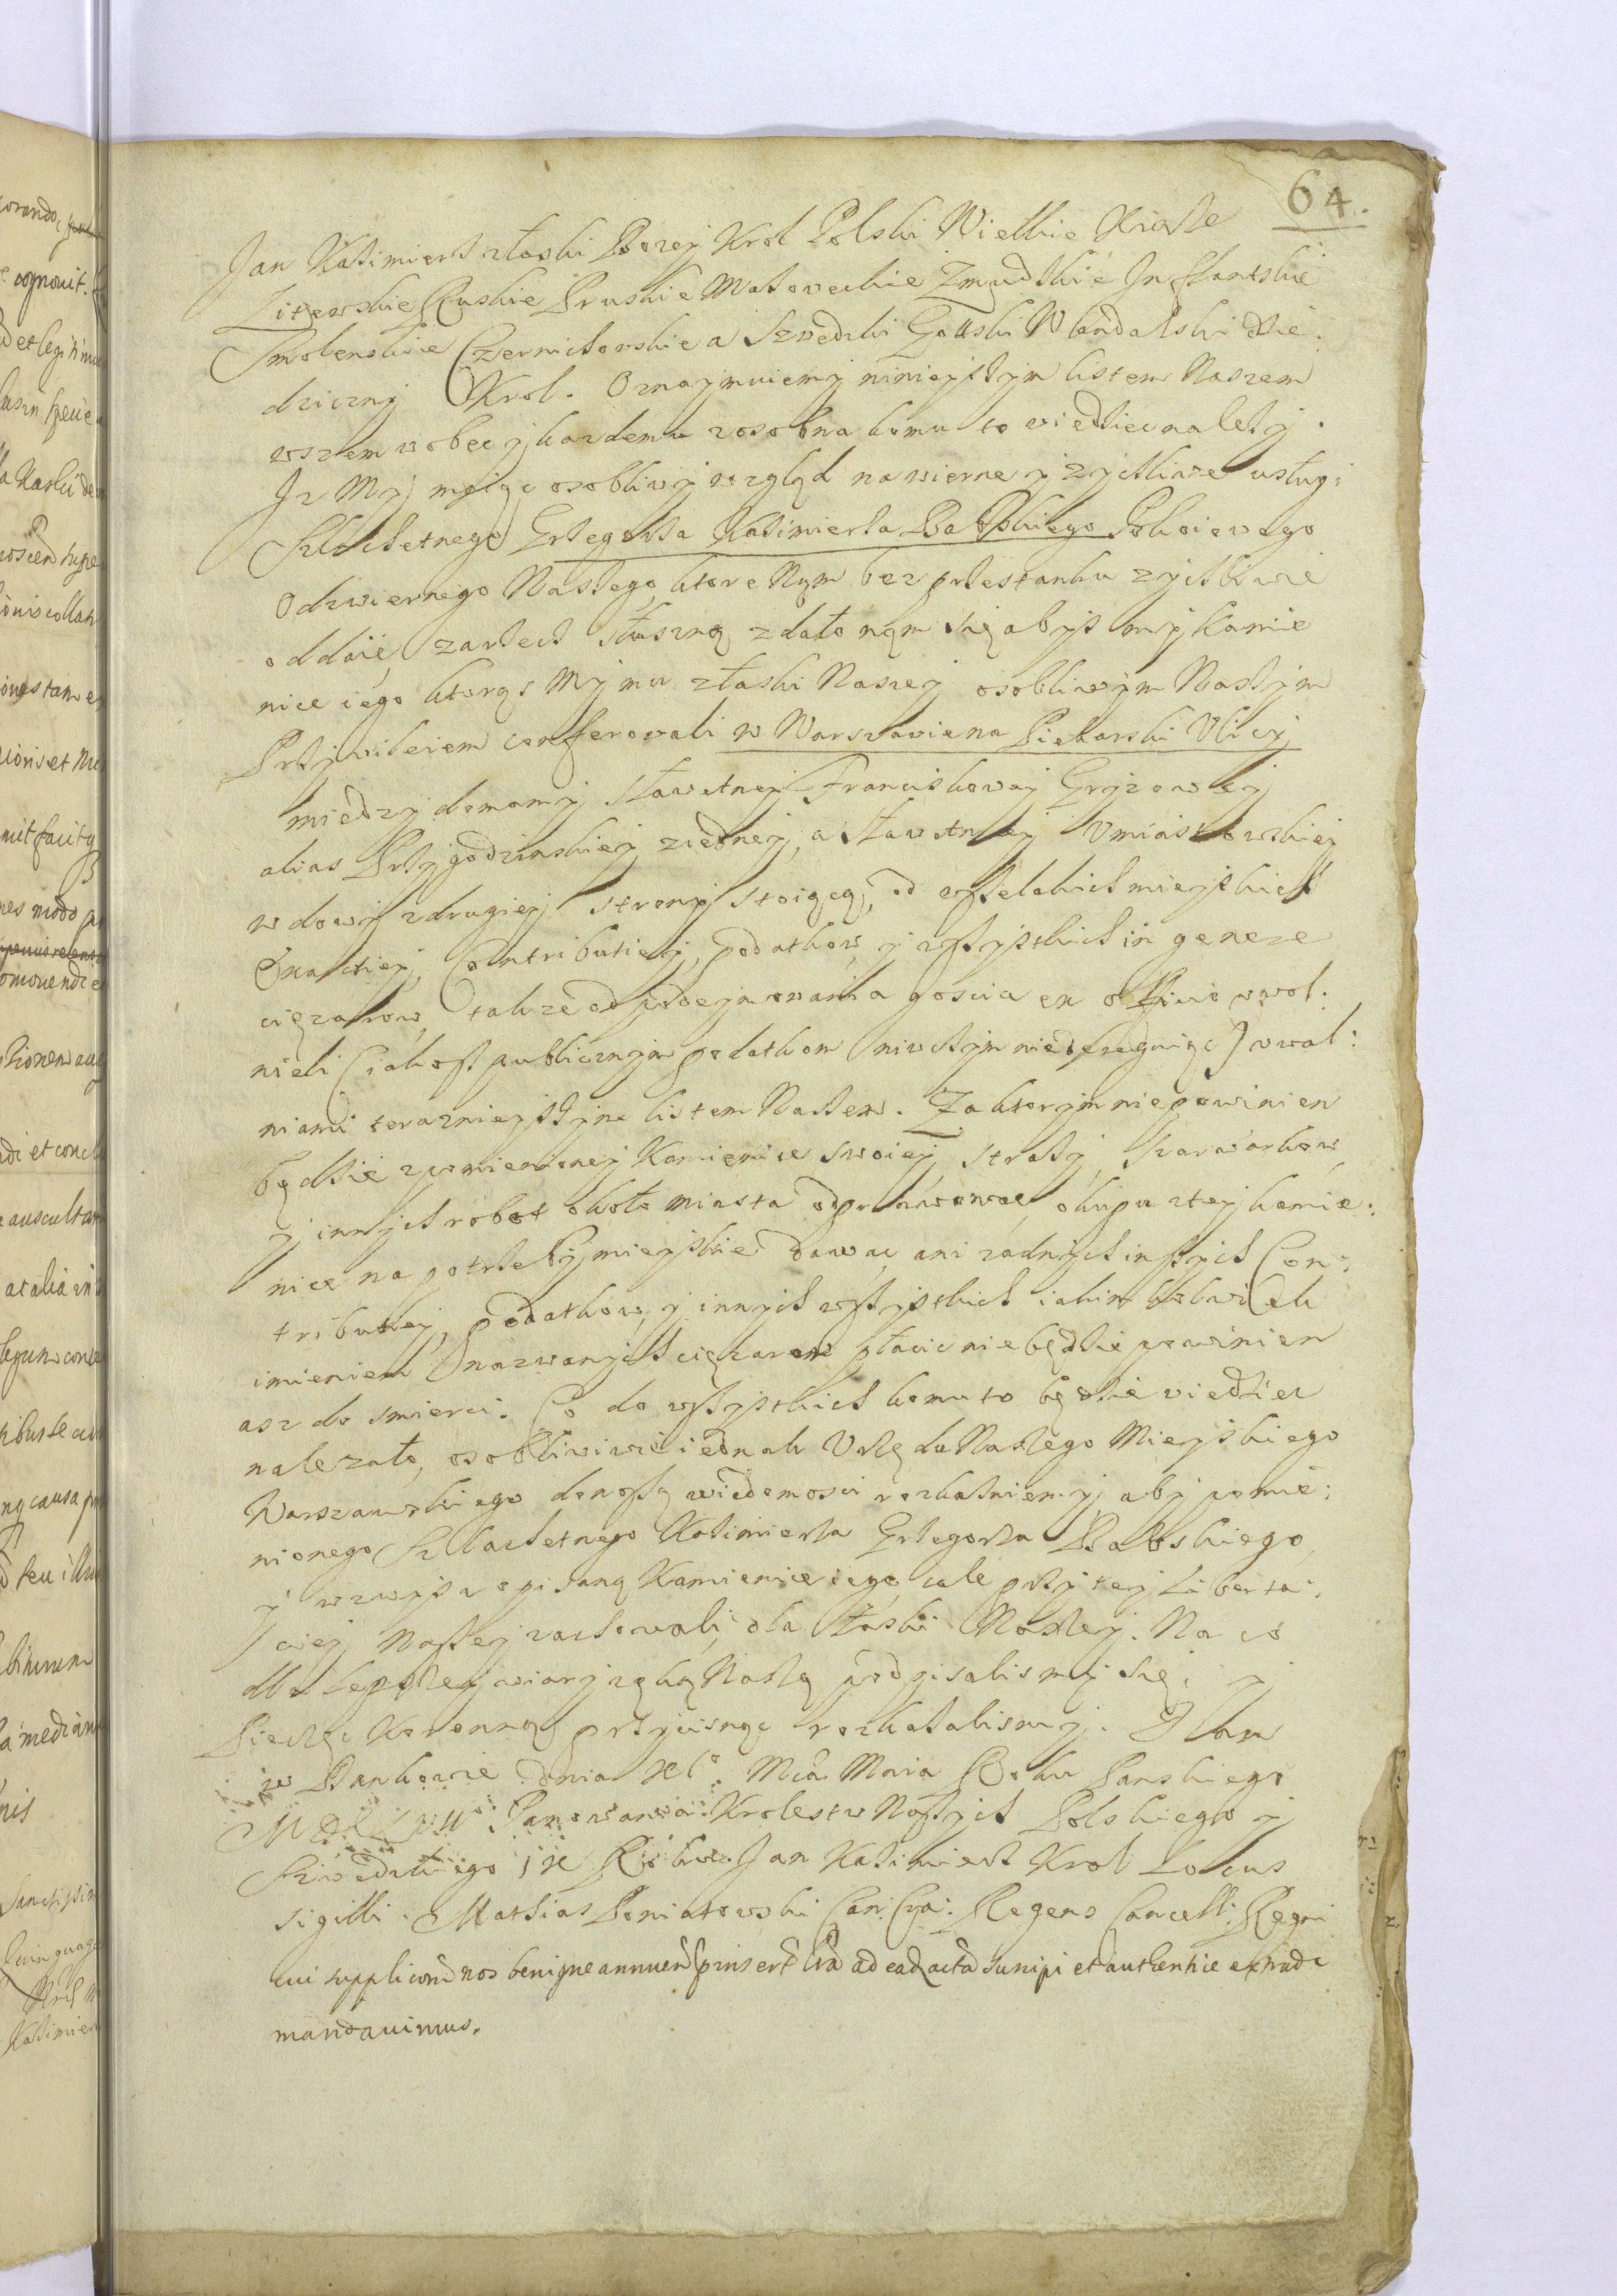 64.
Jan Kazimierz z łaski Bozey Krol Polski Wielkie Xiąże
Litewskie Ruskie Pruskie Mazoweckie Zmudzkie Inflantskie
Smolenskie Czernichowskie a Szwedzki Gottski Wandalski dzie:
dziczny Krol. Oznaymuiemy ninieyszym listem Naszem
wszem wobec y kazdemu zosobna komu to wiedziec nalezy.
Iz My maiąc osobliwy wzgląd na wierne y zyczliwe usługi
Szlachetnego Grzegorza Kazimierza Babskiego Pokoiowego
Odzwiernego Naszego, ktore Nąm bez przestanku zyczliwie
oddaie, za rzecz słuszną zdało nąm się abysmy Kamie
nice iego ktorąs My mu z łaski Naszey osobliwym Naszym
Przywileiem conferowali w Warszawie na Piekarski Ulicy
miedzy domamy sławetney Franciszkowey Gryzowey
alias Przygodzinskiey z iedney, a sławetney Umiastowskiey
wdowy z drugiey strony stoiącą, od wszelakich mieyskich
Exactiey, Contributiey, podatkow, y wszystkich in genere
cięzarow, takze od przeymowania goscia ex officio uwol:
nieli (iakosz publicznym podatkom niwczym nie deroguiąc) uwal:
niami teraznieyszym listem Naszem. Za ktorym niepowinien
będzie zpomienioney Kamienice swoiey strazy, szarwarkow,
y innych robot około miasta odprawowac, okupu z tey kamie:
nice na potrzeby mieyskie dawac, ani zadnych inszych Con:
tributiey, podatkow, y innych wszystkich iakim kolwiek
imieniem nazwanych cięzarow płacic nie będzie powinien
asz do smierci. Co do wszystkich komu to będzie wiedziec
nalezało, osobliwie iednak Urzędu Naszego Mieyskiego
Warszawskiego donosząc wiedomosci rozkazuiemy, aby pomie:
nionego Szlachetnego Kazimierza Grzegorza Babskiego,
y wzwysz opisaną Kamienice iego, cale przy tey Liberta:
ciey Naszey zachowali, dla łaski Naszey. Na co
dla lepszey wiary ręką Naszą podpisalismy się, y
Pieczęc Koronną przycisnąc rozkazalismy. Dan
w Dankowie dnia Mca Maia Roku Panskiego
Panowania Krolestw Naszych Polskiego y
Szwedzkiego Roku. Jan Kazimierz Krol Locus
sigilli. Mathias Poniatowski Can. Cra: Regens Cancell: Regni
cui supplicond nos benigne annuend pinsert lras ad eade acta suscipi et authentice extrade
mandavimus.